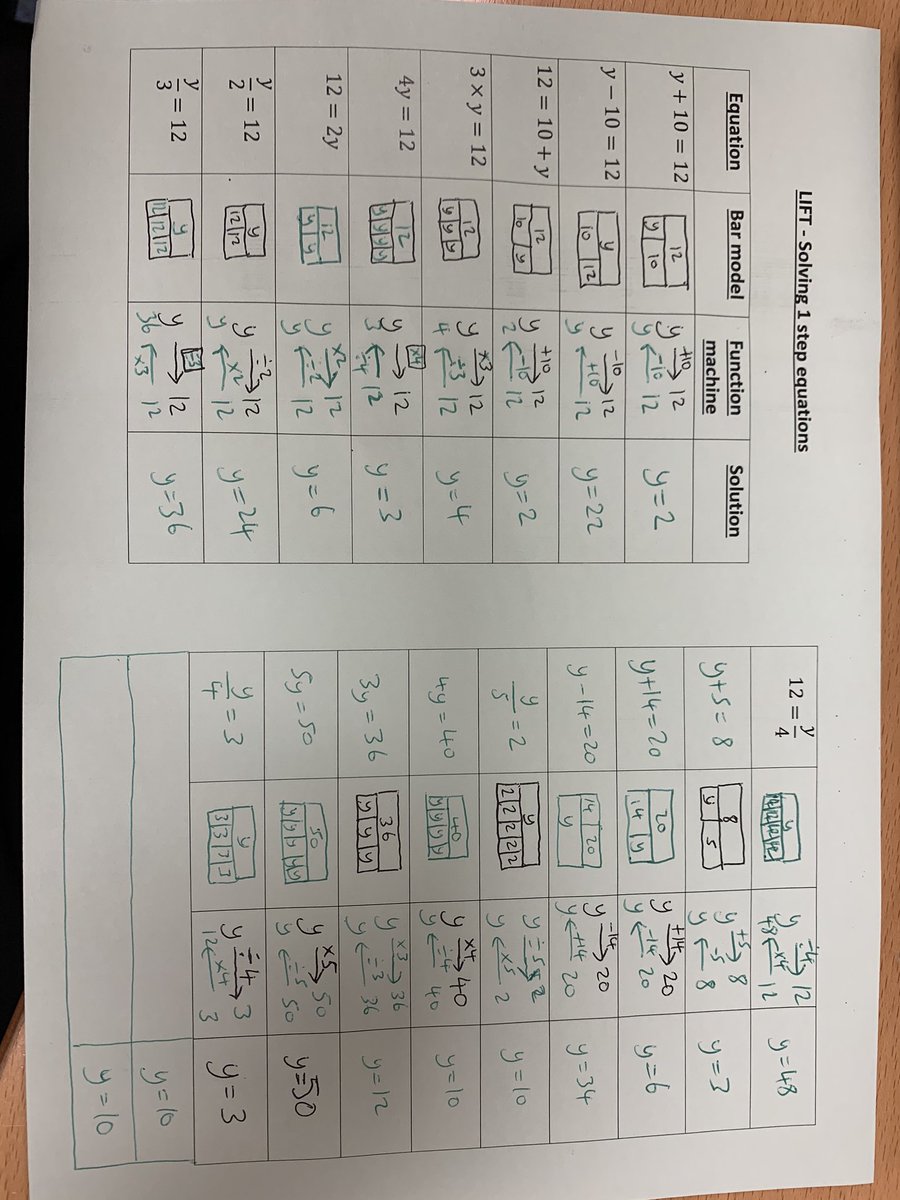 LIFT - Solving 1 step equations
Equation Bar model Function machine Solution
y + 10 = 12 12 y 10 y +10 12 y -10 12 y=2
y − 10 = 12 y 10 12 y -10 12 y +10 12 y=22
12 = 10 + y 12 10 y y +10 12 2 -10 12 y=2
3 × y = 12 12 y y y y ×3 12 4 ÷3 12 y=4
4y = 12 12 y y y y y ×4 12 3 ÷4 12 y=3
12 = 2y 12 y y y ×2 12 y ÷2 12 y=6
y/2 = 12 y 12 12 y ÷2 12 y ×2 12 y=24
y/3 = 12 y 12 12 12 y ÷3 12 36 ×3 12 y=36
12 = y/4 y 12 12 12 12 y ÷4 12 48 ×4 12 y=48
y+5=8 8 y 5 y +5 8 y -5 8 y=3
y+14=20 20 14 y y +14 20 y -14 20 y=6
y-14=20 14 20 y y -14 20 y +14 20 y=34
y/5=2 y 2 2 2 2 2 y ÷5 2 y ×5 2 y=10
4y=40 40 y y y y y ×4 40 y ÷4 40 y=10
3y=36 36 y y y y ×3 36 y ÷3 36 y=12
5y=50 50 y y y y y y ×5 50 y ÷5 50 y=50
y/4=3 y 3 3 3 3 y ÷4 3 12 ×4 3 y=3
y=10
y=10